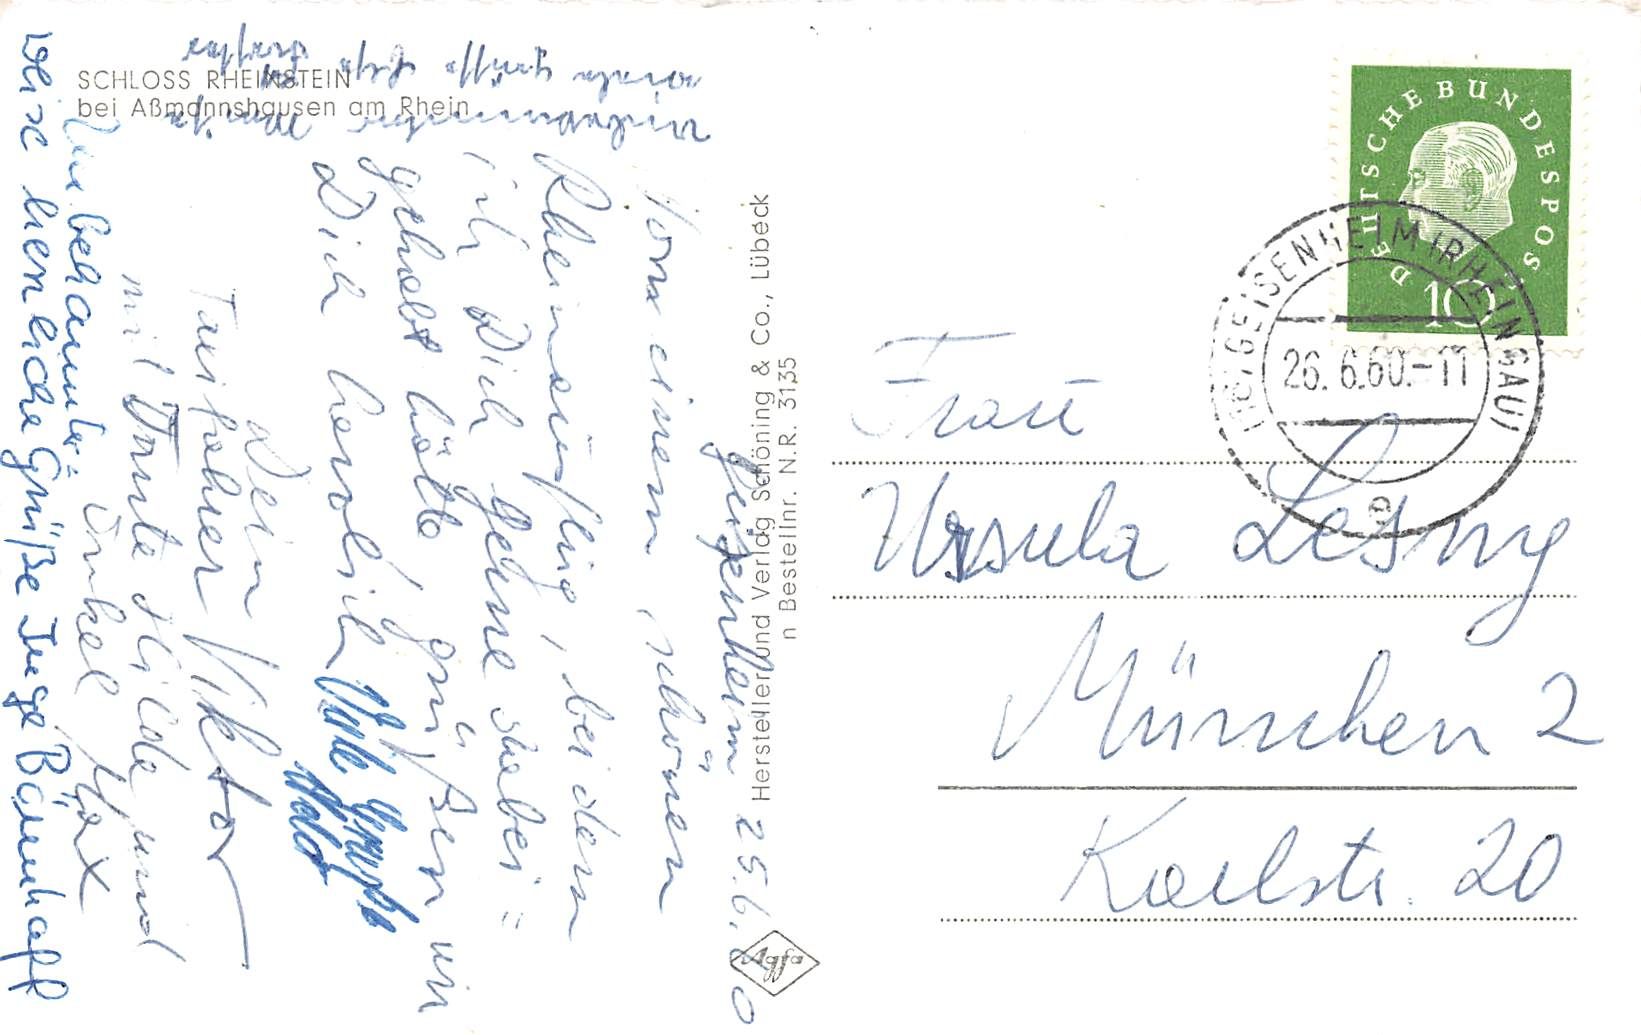 SCHLOSS RHEINSTEIN
bei Aßmannshausen am Rhein
Geisenheim 25.6.60
Von einem schönen
Rheinausflug, bei dem
ich Dich gerne dabei =
gehabt hätte, grüßen wir
Dich herzlich
Viele Grüße
Dein
Taufpaterner Viktor
mit Tante Hilde und
Onkel Max
Unbekannter=
weise herzliche Grüße Inge Bäumhoff
Unbekannter
viele Grüße
Hersteller und Verlag Schöning & Co., Lübeck
n Bestellnr. N.R. 3135
Agfa
DEUTSCHE BUNDESPOST
10
GEISENHEIM (RHEINGAU)
26.6.60.-11
a
Frau
Ursula Lesny
München 2
Karlstr. 20